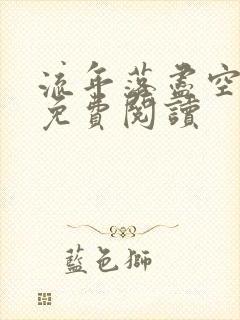 流年落盡空
免費閱讀
藍色獅